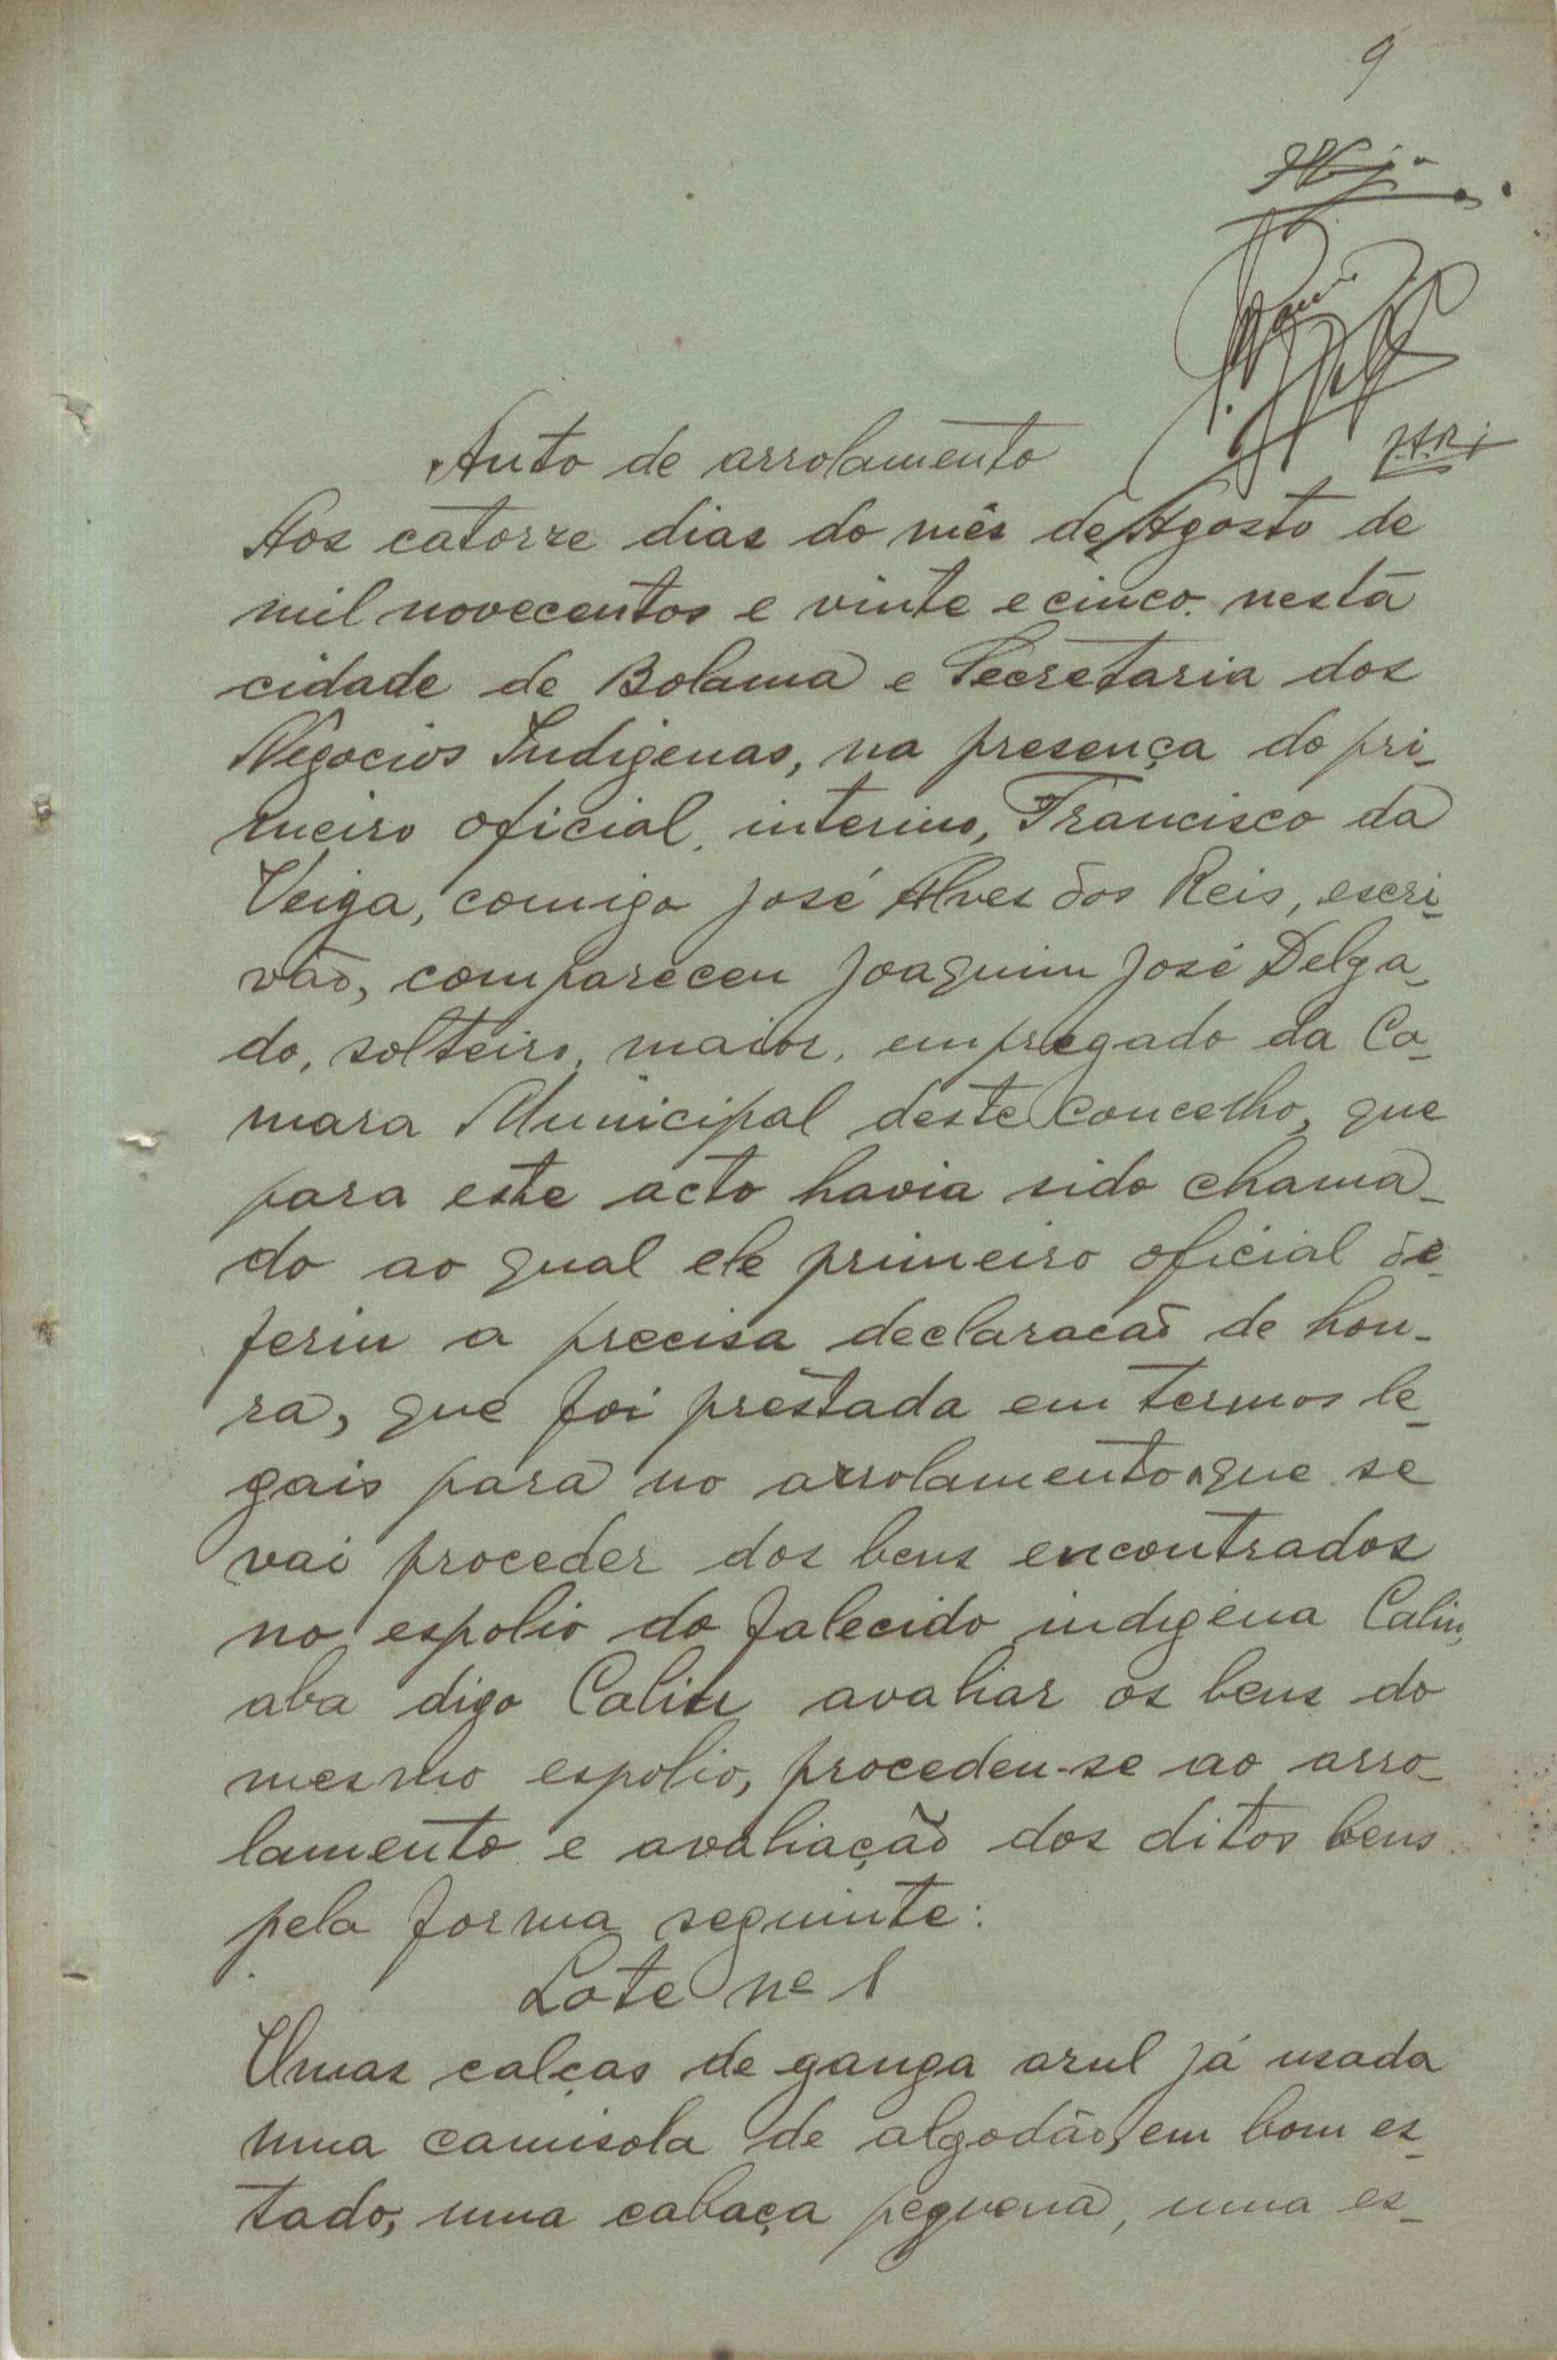 9
Auto de arrolamento
J.A.Reis
Aos catorze dias do mês de Agosto de
mil novecentos e vinte e cinco. nesta
cidade de Bolama e Secretaria dos
Negocios Indigenas, na presença do pri-
meiro oficial, interino, Francisco da
Veiga, comigo José Alves dos Reis, escri-
vão, compareceu Joaquim José Delga-
do, solteiro, maior, empregado da Ca-
mara Municipal deste concelho, que
para este acto havia sido chama-
do ao qual ele primeiro oficial de-
feriu a precisa declaracão de hon-
ra, que foi prestada em termos le-
gais para no arrolamento a que se
vai proceder dos bens encontrados
no espolio do falecido indigena Calin,
aba digo Calin avaliar os bens do
mesmo espolio, procedeu-se ao arro-
lamento e avaliação dos ditos bens
pela forma seguinte:
Lote nº 1
Umas calças de ganga azul já usada
uma camisola de algodão, em bom es-
tado, uma cabaça pequena, uma es-